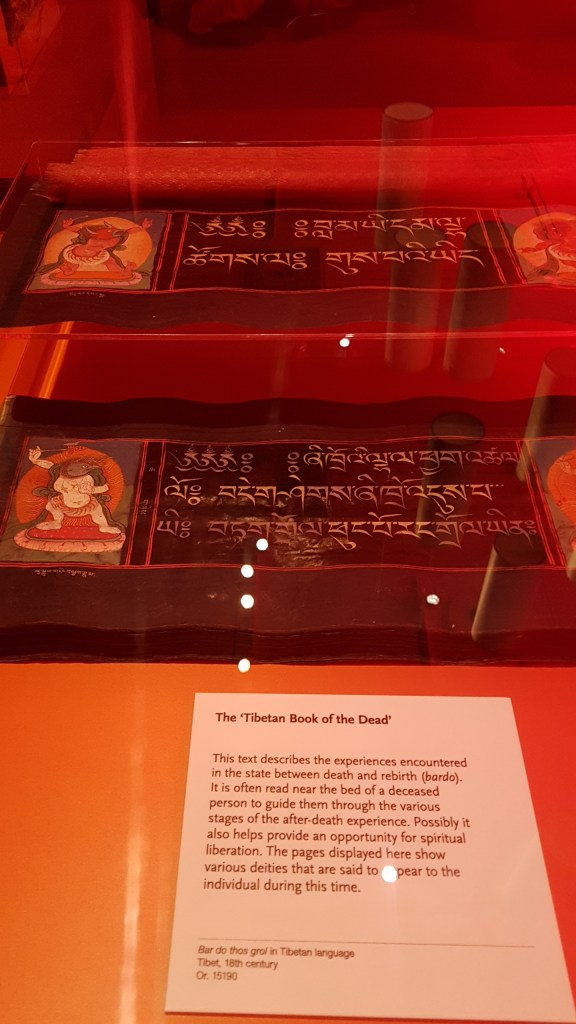 ༔ ༔བླ་མ་ཡི་དམ་ལྷ་
ཚོགས་ལ༔ གུས་པའི་ཡིད
༔ ༔ཞི་ཁྲོའི་ལྷ་ལ་ཕྱག་འཚལ
ལོ༔ བདེ་གཤེགས་ཞི་ཁྲོ་འདུས་པ་
ཡི༔ བཏགས་གྲོལ་ཕུང་པོ་རང་གྲོལ་ཡིན༔
The ‘Tibetan Book of the Dead’
This text describes the experiences encountered
in the state between death and rebirth (bardo).
It is often read near the bed of a deceased
person to guide them through the various
stages of the after-death experience. Possibly it
also helps provide an opportunity for spiritual
liberation. The pages displayed here show
various deities that are said to to the
individual during this time.
Bar do thos grol in Tibetan language
Tibet, 18th century
Or. 15190